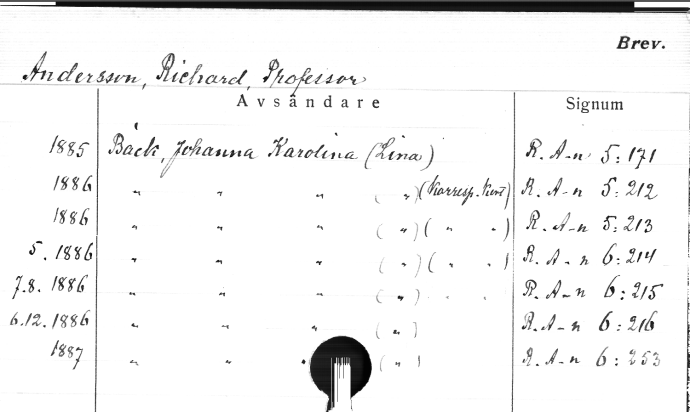 Brev.
Andersson, Richard, Professor
Avsändare Signum
1885 Bäck, Johanna Karolina (Lina) R. A-n 5:171
1886 " " " ( " ) (Korresp. kort) R. A-n 5:212
1886 " " " ( " ) ( " " ) R. A-n 5:213
5. 1886 " " " ( " ) ( " " ) R. A-n 6:214
7.8. 1886 " " " ( " ) " " R. A-n 6:215
6.12. 1886 " " " ( " ) R. A-n 6:216
1887 " " " ( " ) R. A-n 6:253